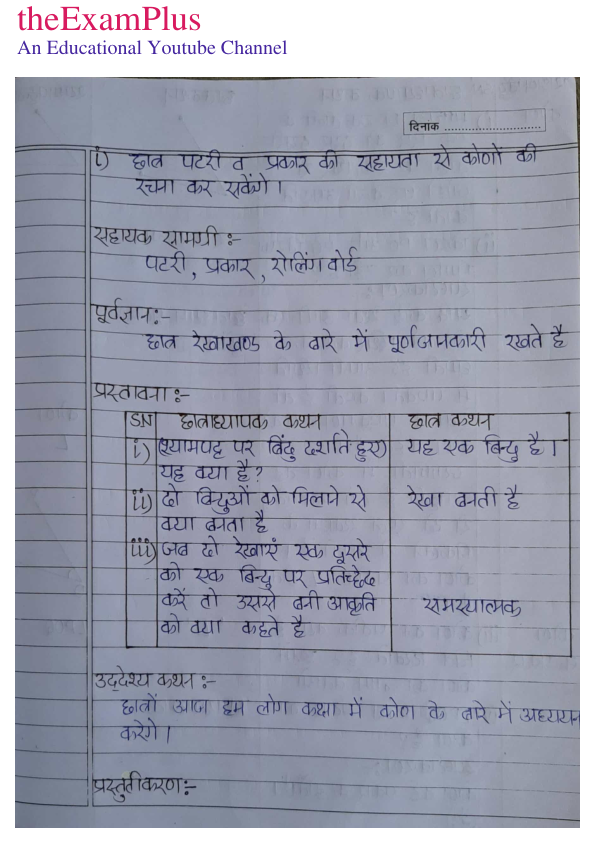 theExamPlus
An Educational Youtube Channel
दिनाक ..............................
i) छात्र पटरी व प्रकार की सहायता से कोणों की
रचना कर सकेंगे ।
सहायक सामग्री :-
पटरी , प्रकार , रोलिंग बोर्ड
पूर्वज्ञान:-
छात्र रेखाखण्ड के बारे में पूर्णजानकारी रखते है
प्रस्तावना :-
SN छात्राध्यापक कथन छात्र कथन
i) (श्यामपट्ट पर बिंदु दर्शाते हुए) यह एक बिन्दु है ।
यह क्या है ?
ii) दो बिन्दुओं को मिलाने से रेखा बनती है
क्या बनता है
iii) जब दो रेखाएं एक दूसरे
को एक बिन्दु पर प्रतिच्छेद
करें तो उससे बनी आकृति समस्यात्मक
को क्या कहते है
उद्देश्य कथन :-
छात्रों आज हम लोग कक्षा में कोण के बारे में अध्ययन
करेगे ।
प्रस्तुतीकरण:-